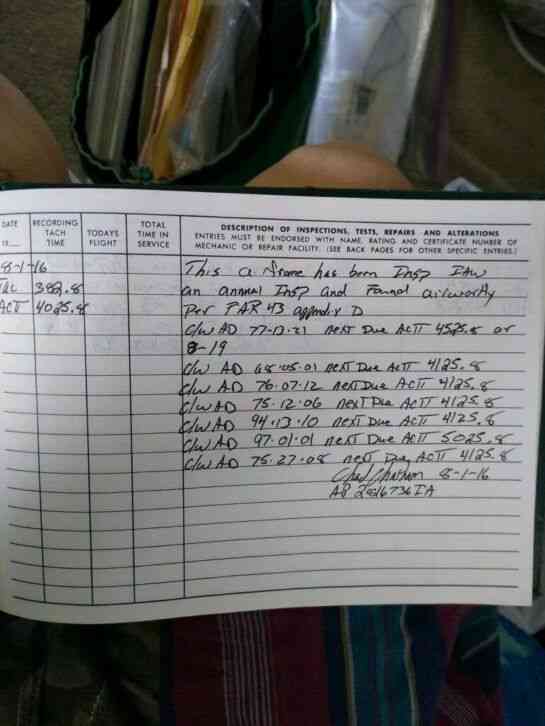 DATE
19
RECORDING TACH TIME
TODAYS FLIGHT
TOTAL TIME IN SERVICE
DESCRIPTION OF INSPECTIONS, TESTS, REPAIRS AND ALTERATIONS
ENTRIES MUST BE ENDORSED WITH NAME, RATING AND CERTIFICATE NUMBER OF
MECHANIC OR REPAIR FACILITY. (SEE BACK PAGES FOR OTHER SPECIFIC ENTRIES.)
8-1-16
382.8
ACTT 4025.8
This a frame has been Insp IAW
an annual Insp and Found airworthy
Per FAR 43 appendix D
C/W AD 77-13-21 next Due ACTT 4525.8 or
8-19
C/W AD 68.05.01 next Due ACTT 4125.8
C/W AD 76.07.12 next Due ACTT 4125.8
C/W AD 75.12.06 next Due ACTT 4125.8
C/W AD 94.13.10 next Due ACTT 4125.8
C/W AD 97.01.01 next Due ACTT 5025.8
C/W AD 75.27.08 next Due ACTT 4125.8
8-1-16
AP 2816736 IA